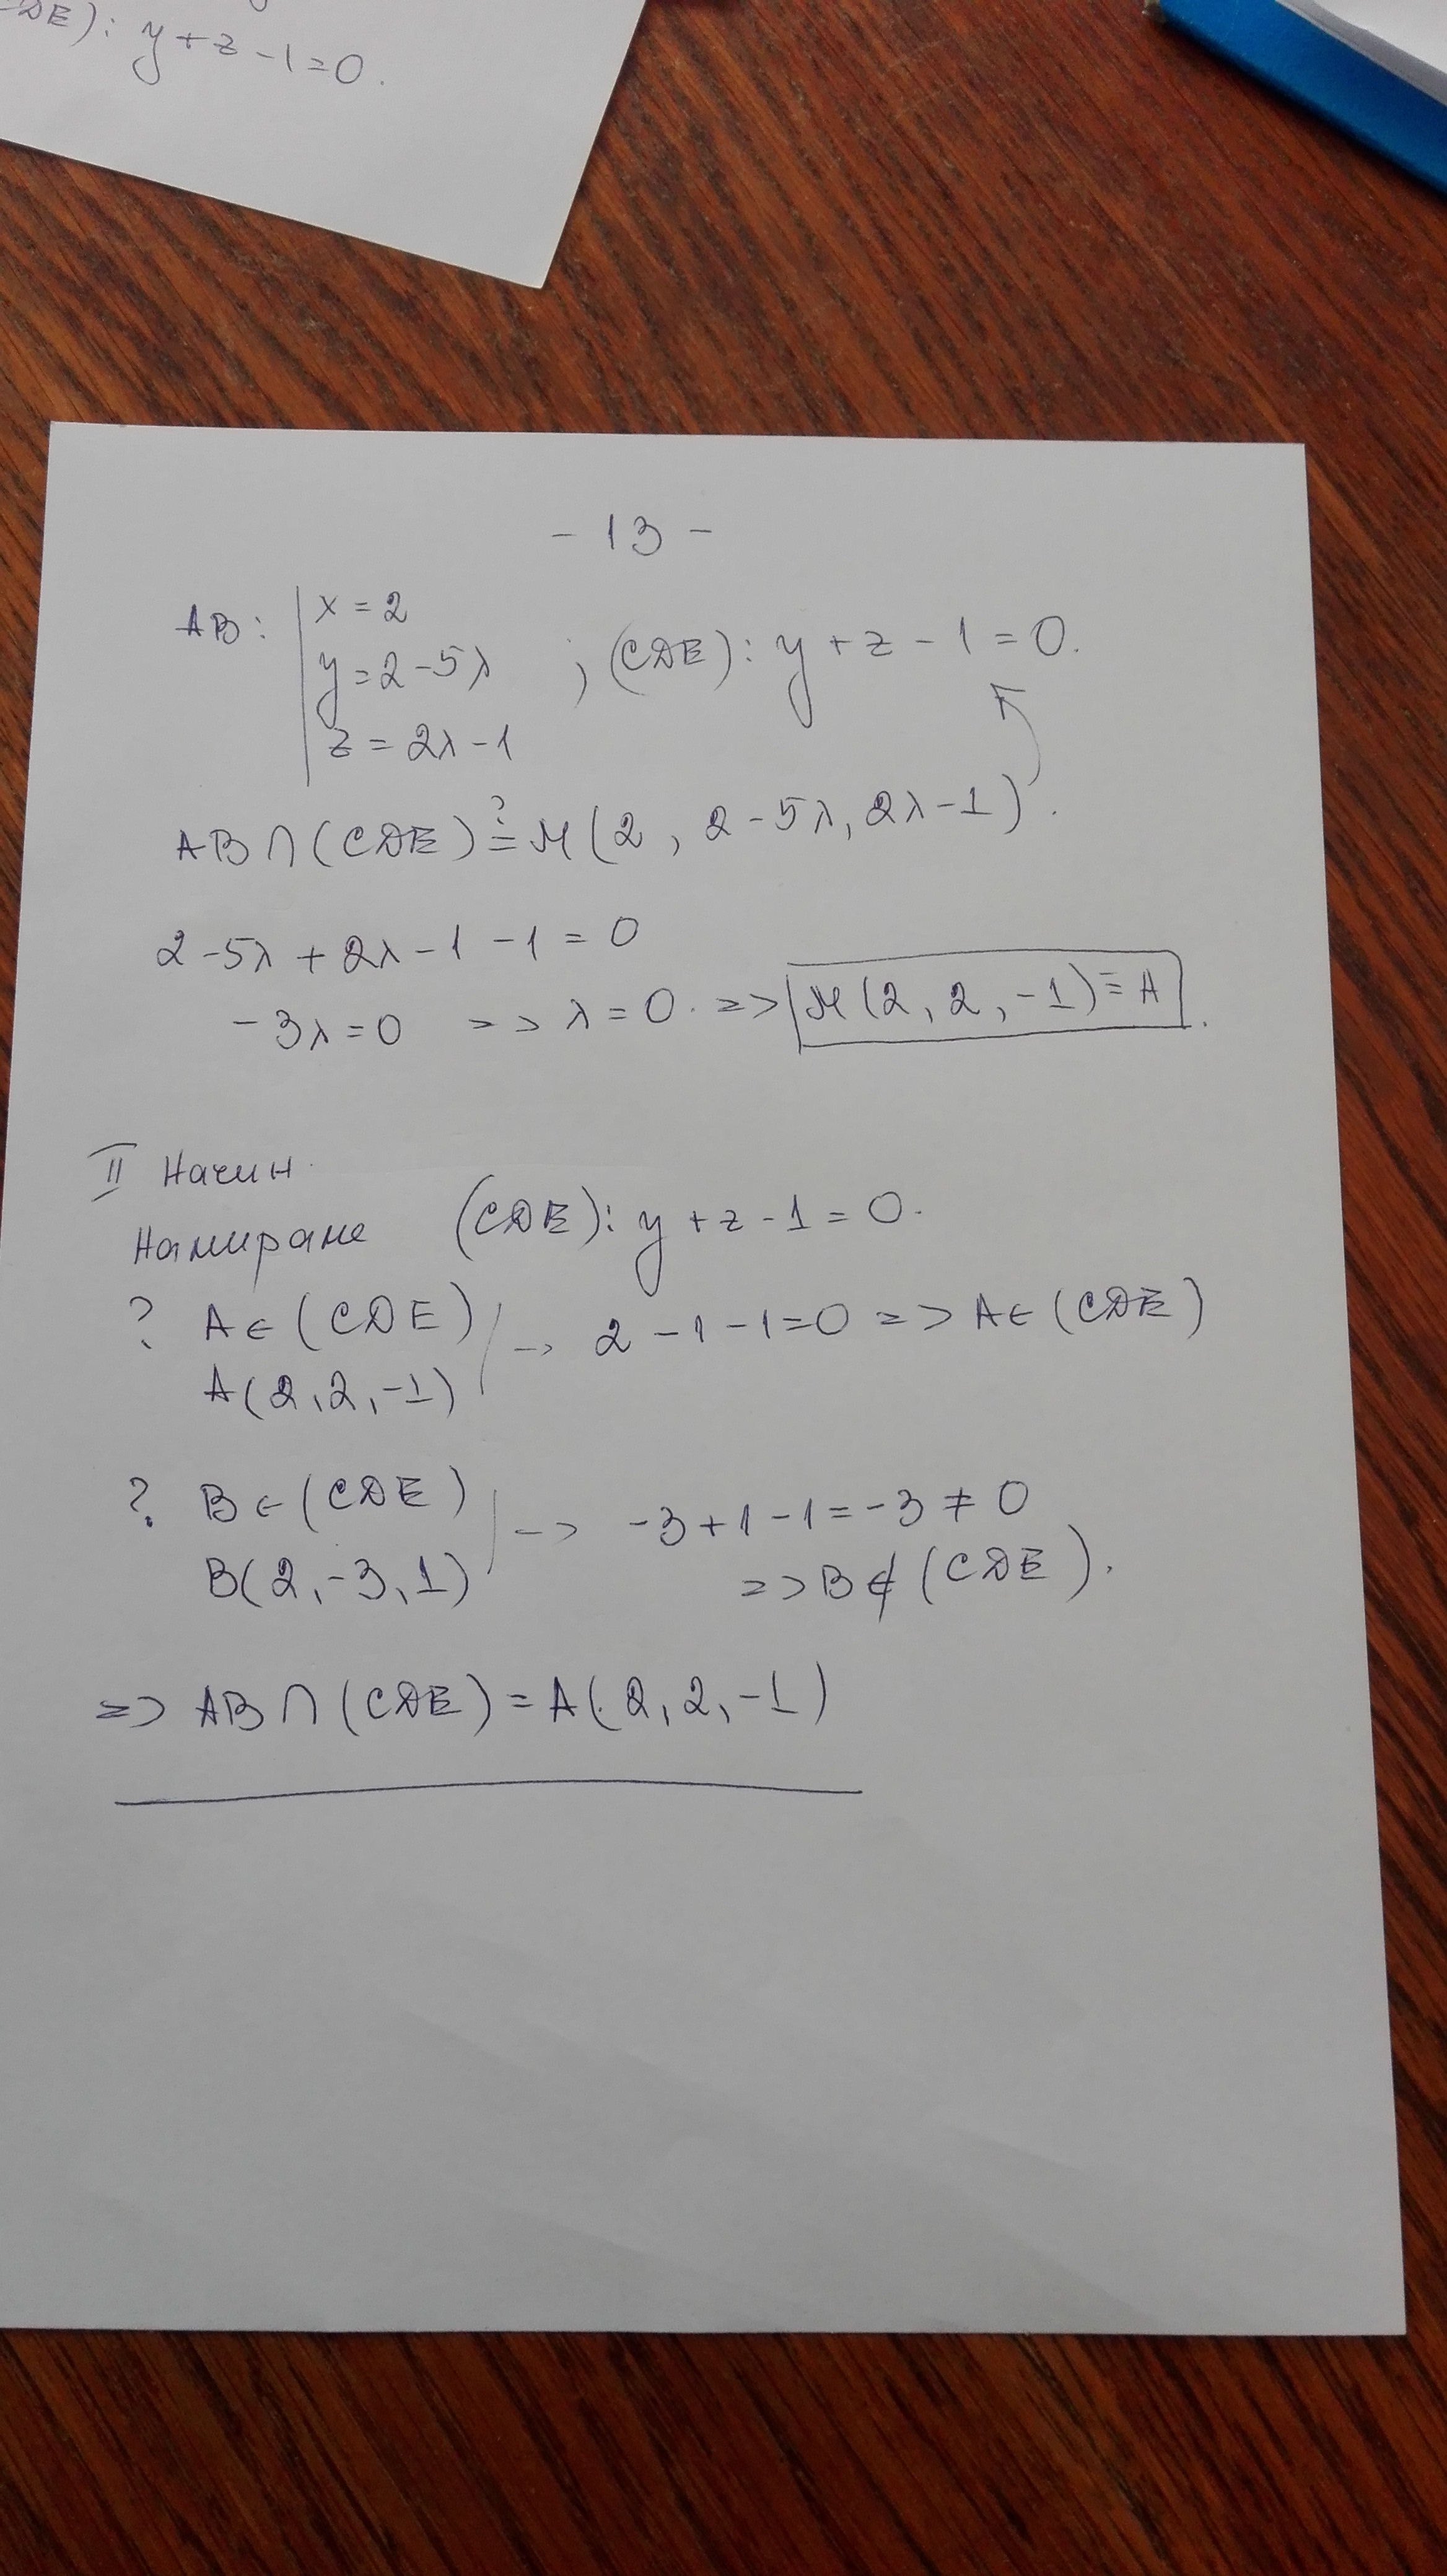 DE): y + z - 1 = 0.
- 13 -
AB: | x = 2
y = 2 - 5λ ; (CDE): y + z - 1 = 0.
z = 2λ - 1
AB ∩ (CDE) ?= M(2, 2 - 5λ, 2λ - 1).
2 - 5λ + 2λ - 1 - 1 = 0
-3λ = 0 => λ = 0. => M(2, 2, -1) ≡ A.
II Начин.
Намираме (CDE): y + z - 1 = 0.
? A ∈ (CDE) | -> 2 - 1 - 1 = 0 => A ∈ (CDE)
A(2, 2, -1)
? B ∈ (CDE) | -> -3 + 1 - 1 = -3 ≠ 0
B(2, -3, 1) => B ∉ (CDE).
=> AB ∩ (CDE) = A(2, 2, -1)